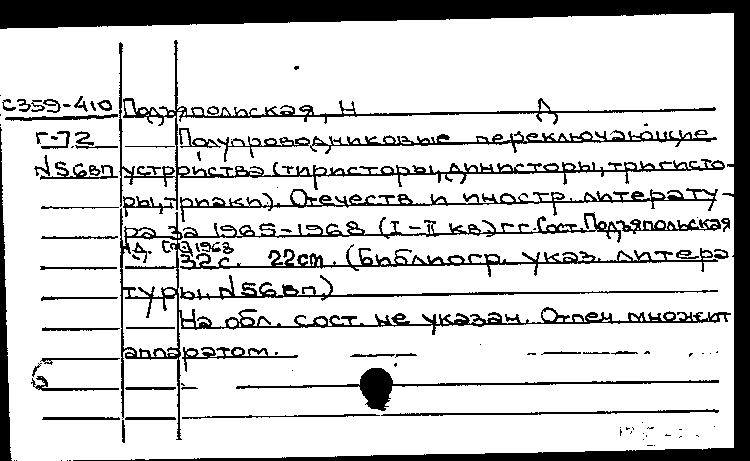 С359-410 Подъяпольская, Н Д
Г-72 Полупроводниковые переключающие
№56вп устройства (тиристоры, динисторы, тринисто-
ры, триаки). Отечеств и иностр. литерату-
ра за 1965-1968 (I-II кв) гг. Сост. Подъяпольская
Н.Д. 1968
32с. 22cm. (Библиогр. указ. литера
туры. №56вп)
На обл. сост. не указан. Отпеч множит
аппаратом.